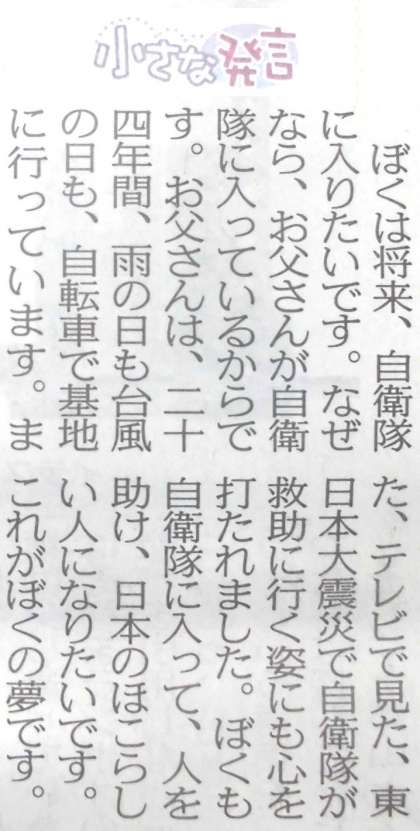 小さな発言
ぼくは将来、自衛隊
に入りたいです。なぜ
なら、お父さんが自衛
隊に入っているからで
す。お父さんは、二十
四年間、雨の日も台風
の日も、自転車で基地
に行っています。ま
た、テレビで見た、東
日本大震災で自衛隊が
救助に行く姿にも心を
打たれました。ぼくも
自衛隊に入って、人を
助け、日本のほこらし
い人になりたいです。
これがぼくの夢です。